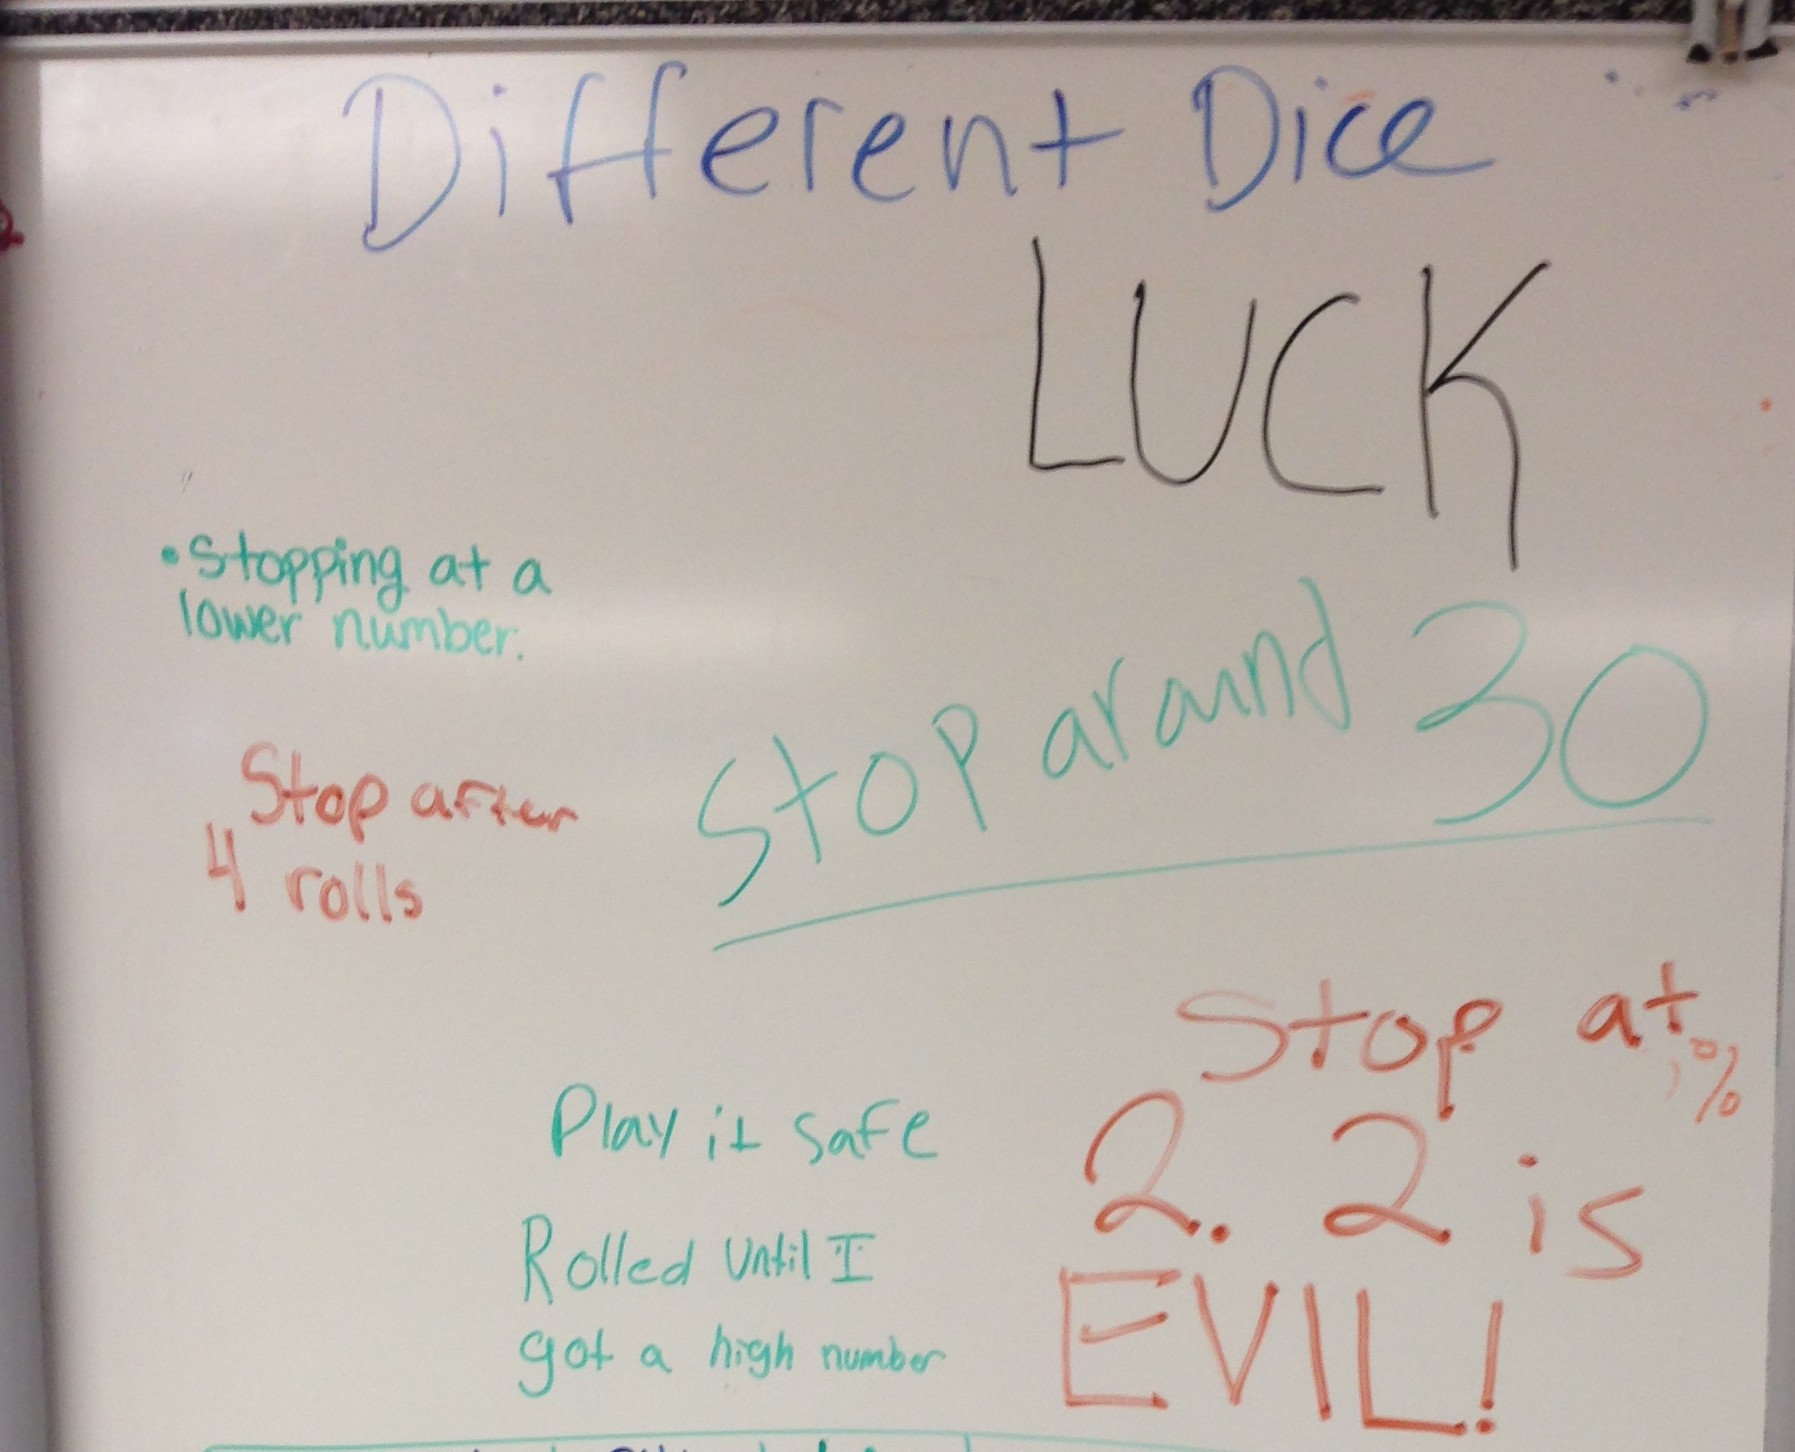 Different Dice
LUCK
• Stopping at a
lower number.
Stop around 30
Stop after
4 rolls
Stop at
2. 2 is
EVIL!
Play it safe
Rolled until I
got a high number